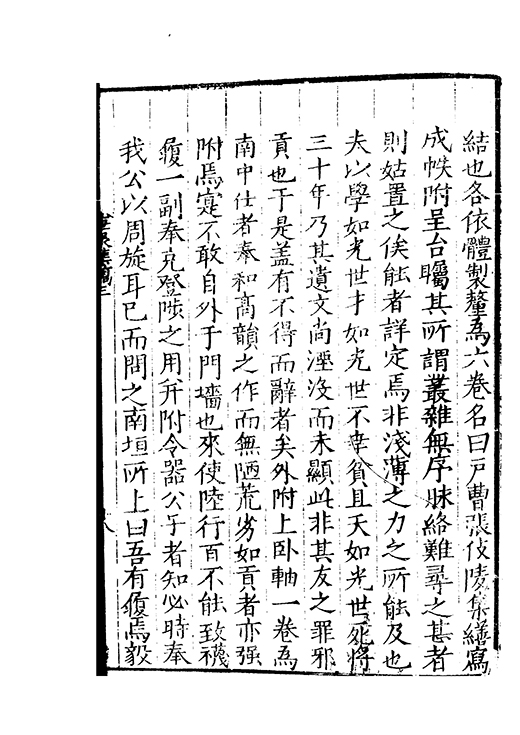 結也各依體製釐為六卷名曰戸曹張伎陵集繕寫
成帙附呈台矚其所謂叢雜無序脉絡難尋之甚者
則姑置之俟能者詳定焉非淺薄之力之所能及也
夫以學如光世才如光世不幸貧且夭如光世死將
三十年乃其遺文尚湮沒而未顯此非其友之罪邪
貢也于是盖有不得而辭者矣外附上卧軸一卷為
南中仕者奉和髙韻之作而無陋荒劣如貢者亦强
附焉寔不敢自外于門墻也來使陸行百不能致襪
履一副奉充登陟之用并附令器公子者知必時奉
我公以周旋耳已而問之南垣所上曰吾有履焉毅